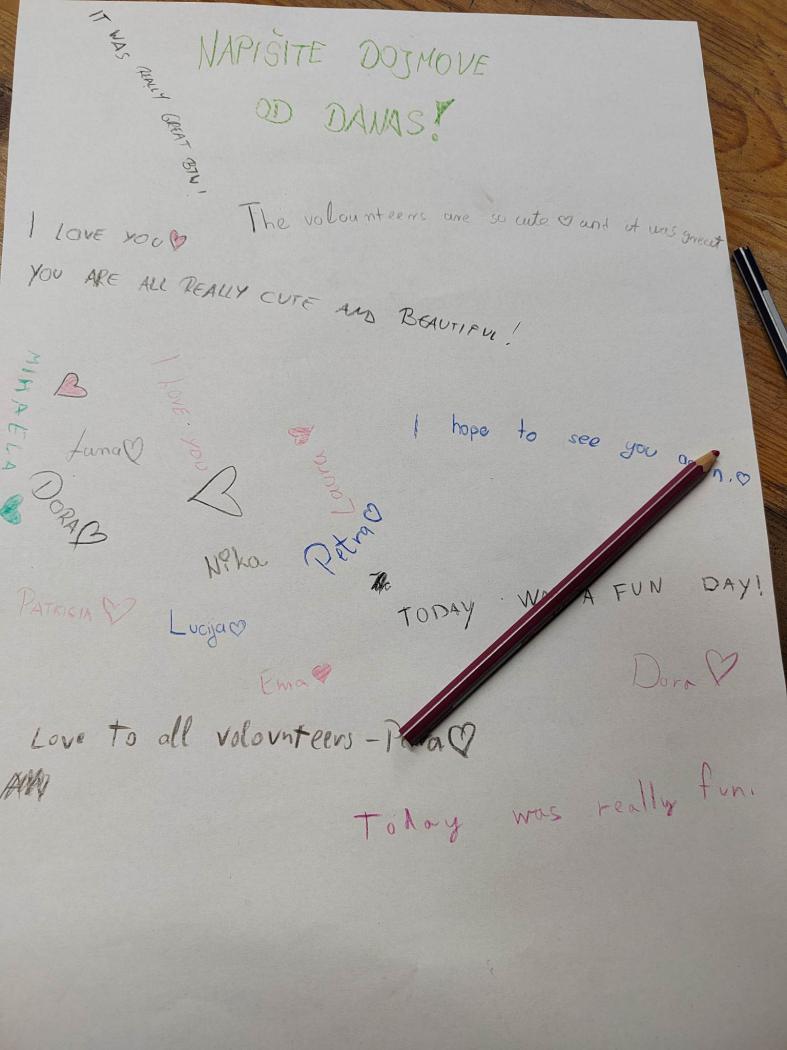 IT WAS REALLY GREAT BTW!
NAPIŠITE DOJMOVE
OD DANAS!
The volounteers are so cute ♡ and it was great
I LOVE YOU ♡
YOU ARE ALL REALLY CUTE AND BEAUTIFUL!
MIHAELA ♡
I LOVE YOU
I hope to see you
Luna ♡
Laura ♡
DORA ♡
Petra ♡
Nika
TODAY A FUN DAY!
PATRICIA ♡
Lucija ♡
Ema ♡
Dora ♡
Love to all volovnteers -
Today was really fun.